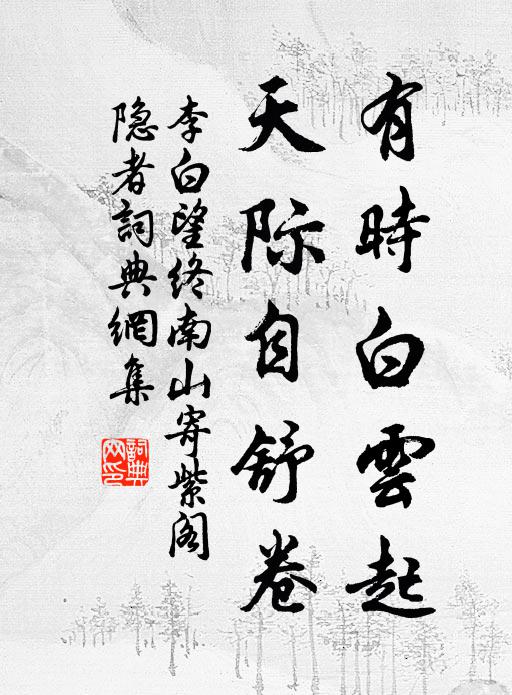 有時白雲起
天际自舒卷
李白望终南山寄紫阁
隐者詞典網集
詞典
网印